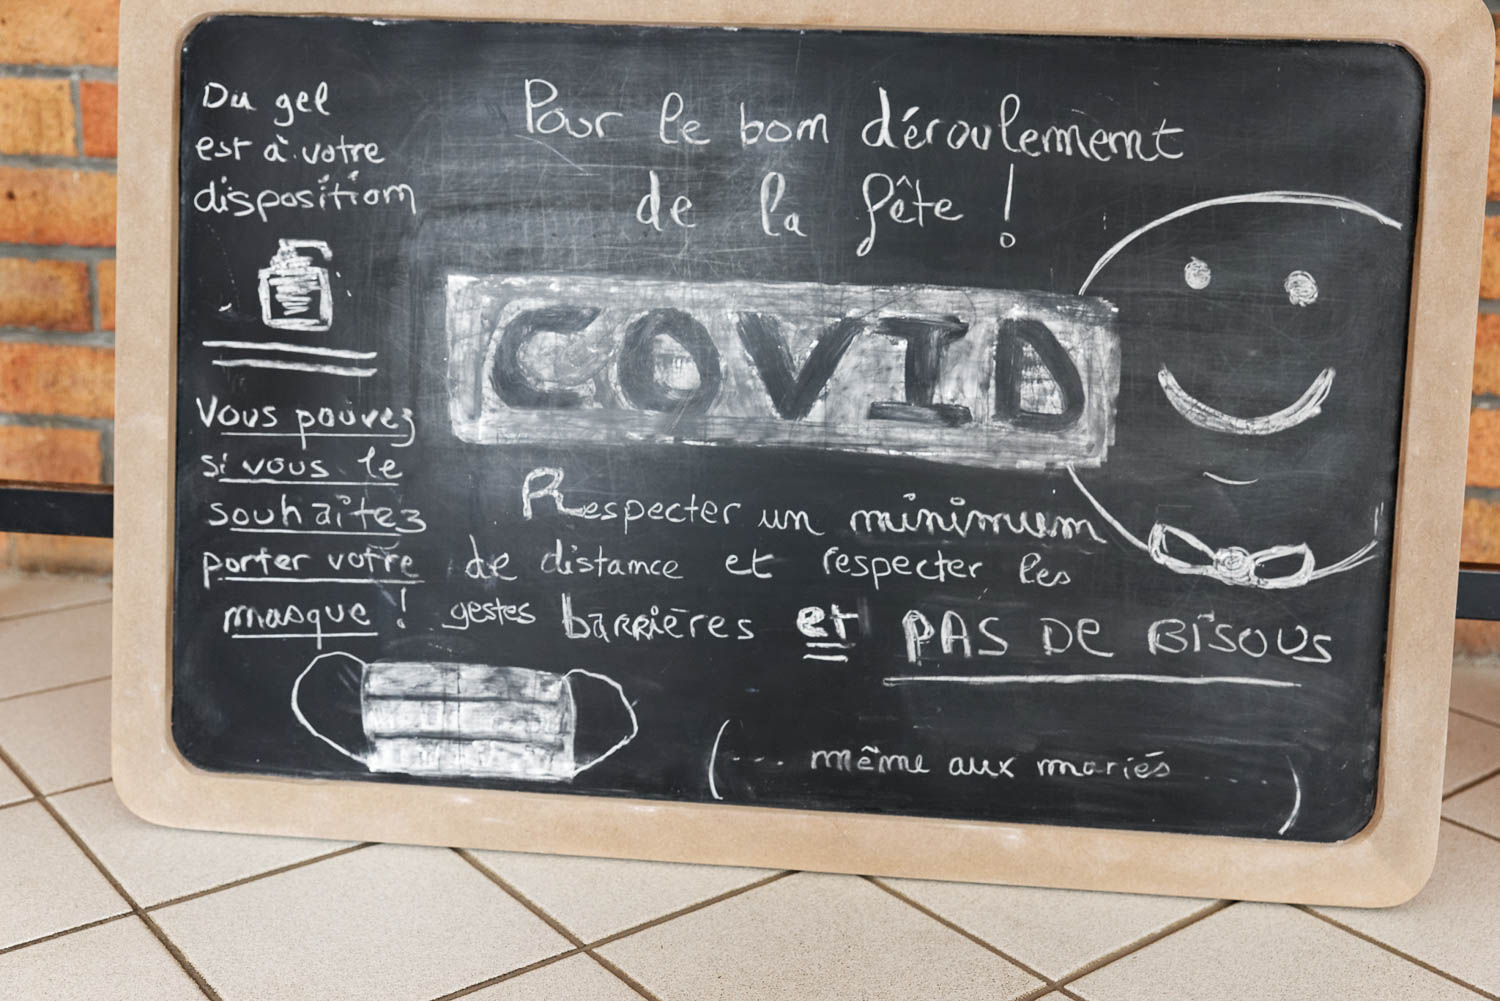 Du gel
est à votre
disposition
Vous pouvez
si vous le
souhaîtez
porter votre
masque !
Pour le bon déroulement
de la fête !
COVID
Respecter un minimum
de distance et respecter les
gestes barrières et PAS DE BISOUS
(... même aux mariés ...)